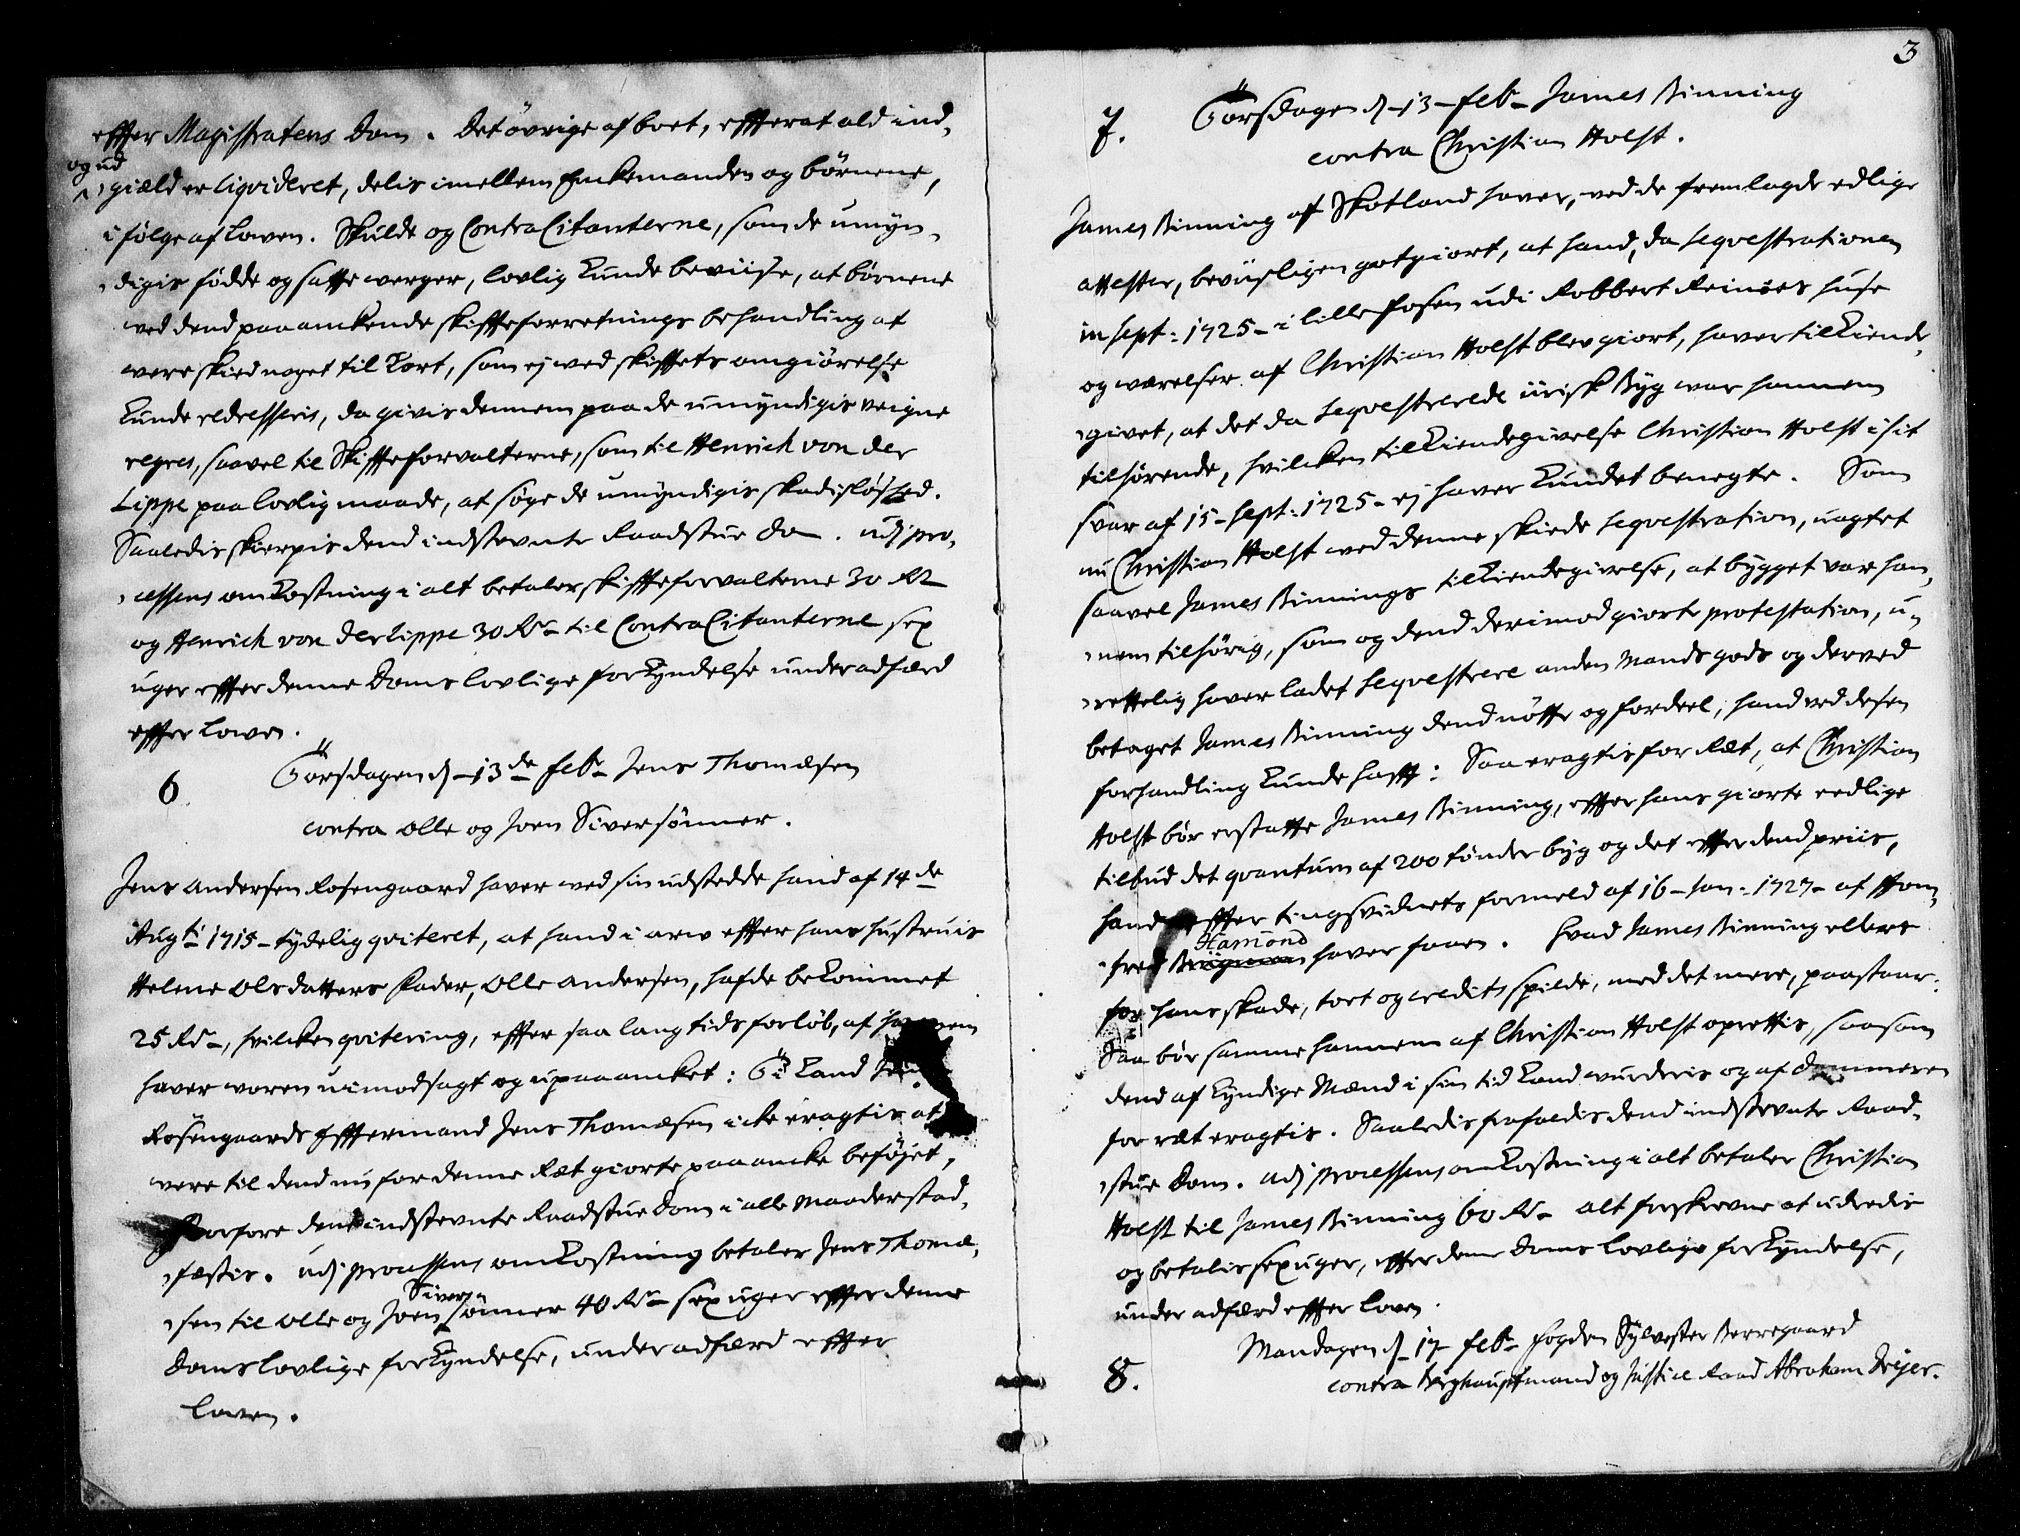 effter Magistratens Dom. Det övrige af boet, effterat ald ind,
og ud
giæld er liqvideret, delis imellem Enkemanden og börnene,
i følge af Lowen. Skulde og ContraCitanterne, som de umyn,
digis födde og satte werger, lovlig kunde beviise, at börnene
ved dend paaankende skifteforretnings behandling at
were skied noget til kort, som ej wed skiftets omgiörelse
kunde redresseris, da givis dennem paa de umyndigis veigne
regres, saavel til Skifteforvalterne, som til Henrich von der
Lippe paa lovlig maade, at søge de umyndigis skadisløshed.
Saaledis skierpis dend indstevnte Raadstue Dom. Udj pro,
cessens omkostning i alt betaler skifteforvalterne 30 Rd
og Henrich von der Lippe 30 Rdr til ContraCitanterne sex
uger effter denne Doms lovlige forkyndelse under adfærd
effter Lowen.
6. Torsdagen d. 13de Febr. Jens Thomæsen
contra Olle og Joen Siversönner.
Jens Andersen Rosengaard haver wed sin udstedde haand af 14de
Augti 1715 tydelig qviteret, at hand i arv effter hans hustruis
Helene Olsdatters Fader, Olle Andersen, hafde bekommet
25 Rdr, hvilcken qvitering, effter saa lang tids forlöb, af hannem
haver woren uimodsagt og upaaancket: Ti kand Jens
Rosengaards Effterman Jens Thomæsen icke eragtis at
were til dend nu for denne Ræt giorte paaancke beföjet,
Hvorfore dend indstevnte Raadstue Dom i alle Maader stad,
fæstis. Udj processens omkostning betaler Jens Thomæ,
Siver
sen til Olle og Joen sönner 40 Rdr sex uger effter denne
Doms lovlige forkyndelse, under adfærd effter
Loven.
3
7. Torsdagen d. 13 Febr. James Binning
contra Christian Holst.
James Binning af Skotland haver, ved de fremlagde edlige
attester, beviisligen gotgiort, at hand, da seqvestrationen
in Sept: 1725 i lille Fosen udi Robbert Reinies huse
og værelser af Christian Holst blev giort, haver tilkiende,
givet, at det da seqvestrerede iirisk Byg war hannem
tilhørende, hvilcken tilkiendegivelse Christian Holst i sit
svar af 15 Sept: 1725 ej haver kundet benegte. Som
nu Christian Holst wed denne skiede seqvestration, uagtet
saavel James Binnings tilkiendegivelse, at bygget var han,
nem tilhørig, som og dend derimod giorte protestation, u,
rettelig haver ladet seqvestrere anden Mands gods og derved
betaget James Binning dend nötte og fordeel, hand ved desen
forhandling kunde hafft: Saa eragtis for Ræt, at Christian
Holst bör erstatte James Binning, effter hans giorte eedlige
tilbud det qvantum af 200 tönder byg og det effter dend priis,
hand effter tingsvidnets formeld af 16 Jan: 1727 af Hom,
Hamond
fred haver faaen. Hvad James Binning ellers
for hans skade, tort og credits spilde, med det mere, paastaar:
Saa bör samme hannem af Christian Holst oprettis, saasom
dend af kyndige Mænd i sin tid kand wurderis og af Dommeren
for ræt eragtis. Saaledis frafaldis dend indstevnte Raad,
stue Dom. Udj processens omkostning i alt betaler Christian
Holst til James Binning 60 Rdr alt forskrevne at udredis
og betalis sex uger, effter denne Doms lovlige forkyndelse,
under adfærd effter Loven.
8. Mandagen d. 17 Febr. Fogden Sÿlvester Berregaard
contra Berghauptmand og Justice Raad Abraham Dreÿer.